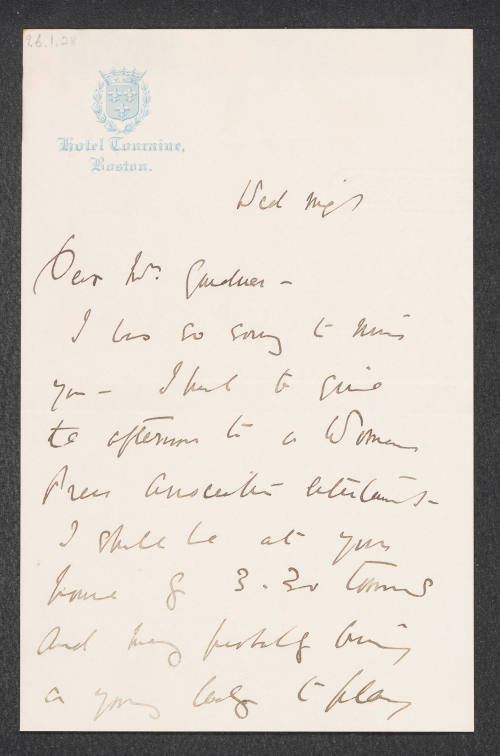 26.1.28
Hotel Touraine,
Boston.
Wed night
Dear Mrs. Gardner -
I was so sorry to miss
you - I had to give
the afternoon to a Womans
Press Association entertainment -
I shall be at your
house by 3.30 tomorrow
and may probably bring
a young lady to play